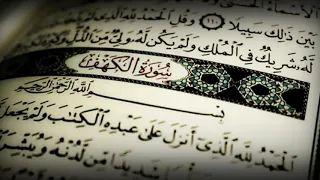 بَيْنَ ذَٰلِكَ سَبِيلًا ﴿١١٠﴾ وَقُلِ ٱلْحَمْدُ لِلَّهِ ٱلَّذِى
لَّهُۥ شَرِيكٌ فِى ٱلْمُلْكِ وَلَمْ يَكُن لَّهُۥ وَلِىٌّ مِّنَ ٱلذُّلِّ
سُورَةُ الْكَهْفِ
بِسْمِ ٱللَّهِ ٱلرَّحْمَٰنِ ٱلرَّحِيمِ
ٱلْحَمْدُ لِلَّهِ ٱلَّذِىٓ أَنزَلَ عَلَىٰ عَبْدِهِ ٱلْكِتَٰبَ وَلَمْ يَجْعَل
شَدِيدًا مِّن لَّدُنْهُ وَيُبَشِّرَ